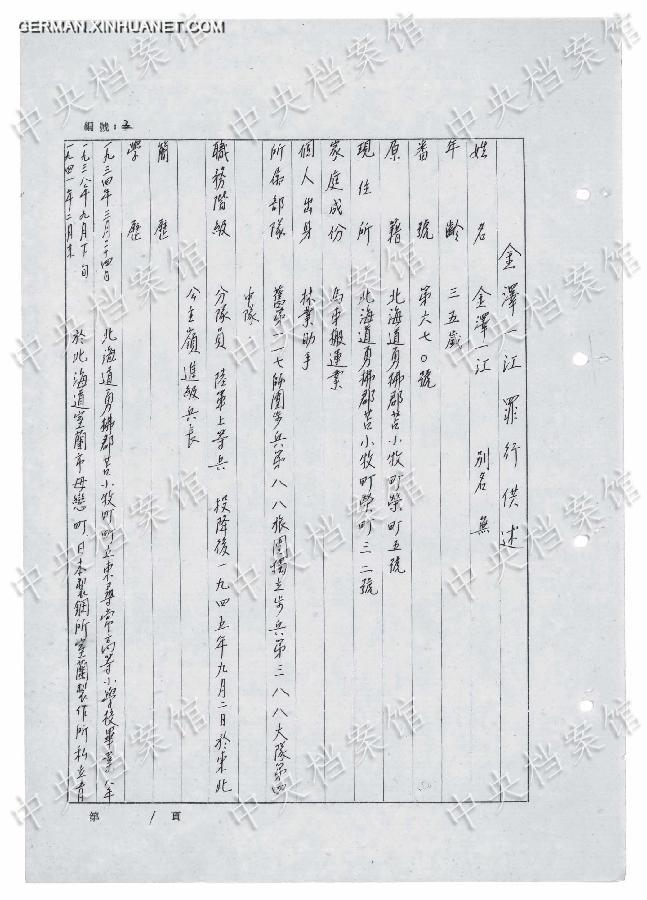 GERMAN.XINHUANET.COM
編號：3
金澤一江罪行供述
姓名 金澤一江 別名無
年齡 三五歲
番號 第六七〇號
原籍 北海道勇拂郡苫小牧町榮町五號
現住所 北海道勇拂郡苫小牧町榮町三二號
家庭成份 馬車搬運業
個人出身 林業助手
所屬部隊 舊第一一七師團步兵第八八旅團獨立步兵第三八八大隊第四
中隊．
職務階級 分隊員 陸軍上等兵 投降後一九四五年九月二日於東北
公主嶺進級兵長
簡歷
學歷
一九三四年三月二十四日 北海道勇拂郡苫小牧町町立東尋常高等小學校畢業八年
一九三八年九月下旬
一九四一年二月末 於北海道室蘭市母戀町日本製鋼所室蘭製作所私立青
第 1 頁
中央档案馆